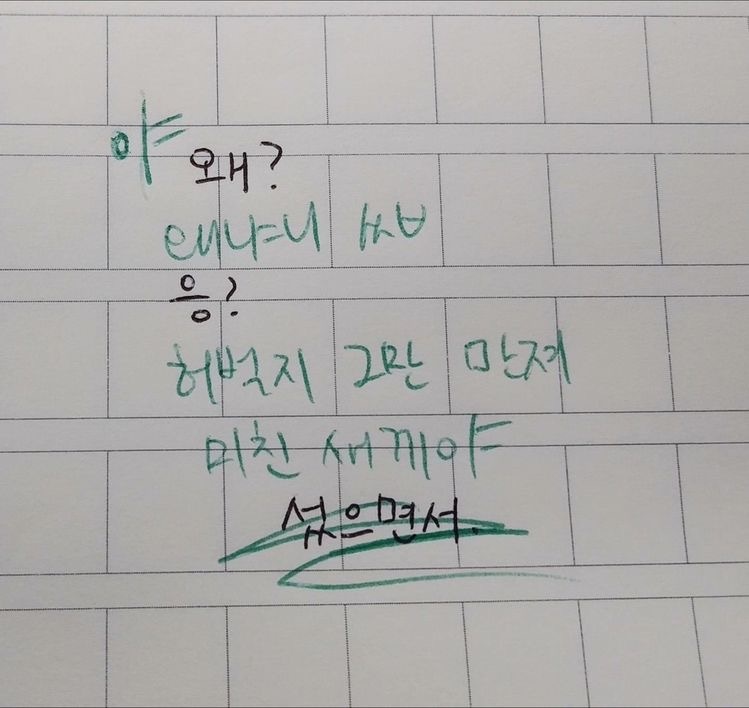 야 왜?
태나니 ㅆㅂ
응?
허벅지 그만 만져
미친 새끼야
섰으면서.